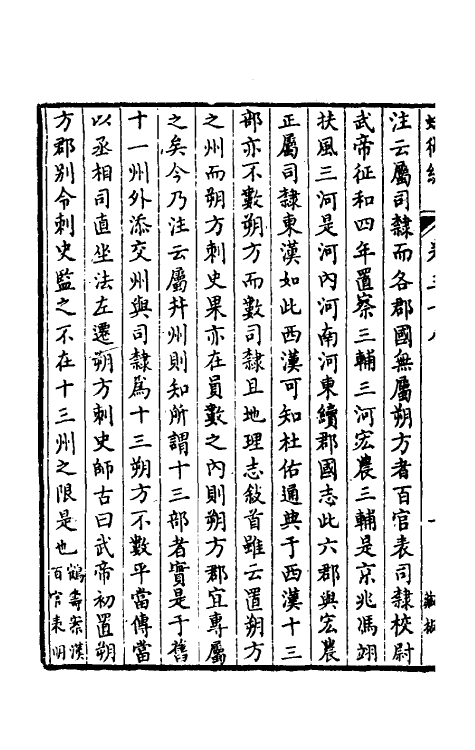 注云屬司隸而各郡國無屬朔方者百官表司隸校尉
武帝征和四年置察三輔三河宏農三輔是京兆馮翊
扶風三河是河內河南河東續郡國志此六郡與宏農
正屬司隸東漢如此西漢可知杜佑通典于西漢十三
部亦不數朔方而數司隸且地理志敘首雖云置朔方
之州而朔方刺史果亦在員數之內則朔方郡宜專屬
之矣今乃注云屬并州則知所謂十三部者實是于舊
十一州外添交州與司隸爲十三朔方不數平當傳當
以丞相司直坐法左遷朔方刺史師古曰武帝初置朔
方郡別令刺史監之不在十三州之限是也
鶴壽案漢
百官表明